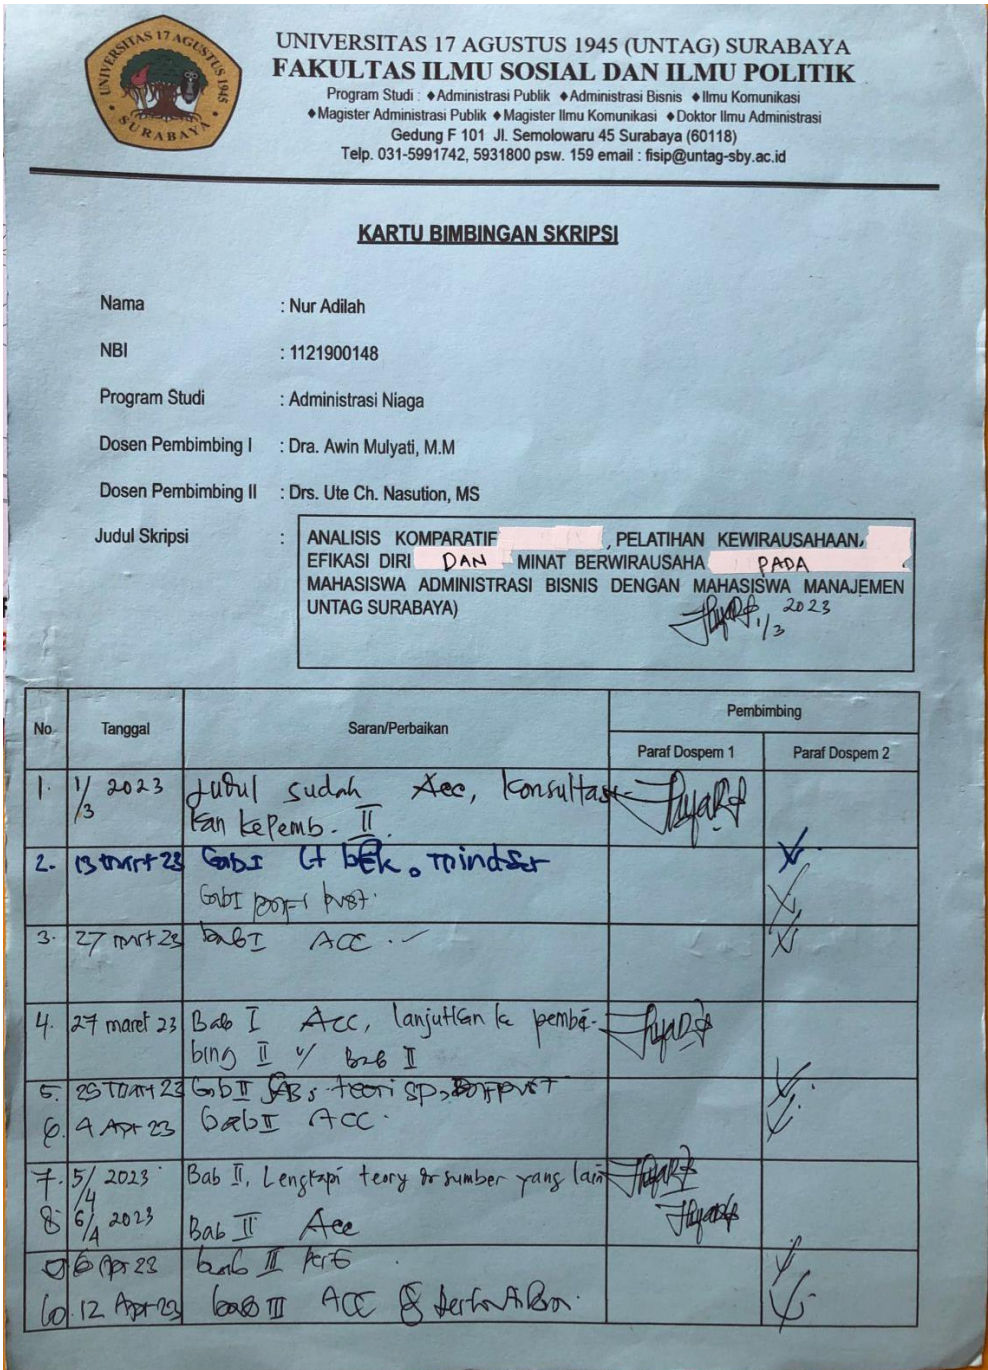 UNIVERSITAS 17 AGUSTUS 1945
SURABAYA
UNIVERSITAS 17 AGUSTUS 1945 (UNTAG) SURABAYA
FAKULTAS ILMU SOSIAL DAN ILMU POLITIK
Program Studi : ♦Administrasi Publik ♦Administrasi Bisnis ♦Ilmu Komunikasi
♦Magister Administrasi Publik ♦Magister Ilmu Komunikasi ♦Doktor Ilmu Administrasi
Gedung F 101 Jl. Semolowaru 45 Surabaya (60118)
Telp. 031-5991742, 5931800 psw. 159 email : fisip@untag-sby.ac.id
KARTU BIMBINGAN SKRIPSI
Nama : Nur Adilah
NBI : 1121900148
Program Studi : Administrasi Niaga
Dosen Pembimbing I : Dra. Awin Mulyati, M.M
Dosen Pembimbing II : Drs. Ute Ch. Nasution, MS
Judul Skripsi : ANALISIS KOMPARATIF , PELATIHAN KEWIRAUSAHAAN,
EFIKASI DIRI DAN MINAT BERWIRAUSAHA PADA
MAHASISWA ADMINISTRASI BISNIS DENGAN MAHASISWA MANAJEMEN
UNTAG SURABAYA)
1/3 2023
No. Tanggal Saran/Perbaikan Pembimbing
Paraf Dospem 1 Paraf Dospem 2
1. 1/3 2023 Judul sudah Acc, konsultasi
kan kepemb. II.
2. 13 Mart 23 Bab I
Bab I
3. 27 Mart 23 bab I ACC.
4. 27 maret 23 Bab I Acc, lanjutkan ke pembi-
bing II u/ Bab II
5. 29 Mart 23 Bab II teori
6. 4 Apr 23 bab II ACC.
7. 5/4 2023 Bab II, Lengkapi teory dr sumber yang lain
8. 6/4 2023 Bab II Acc
9. 6 Apr 23 bab III
10. 12 Apr 23 bab III ACC